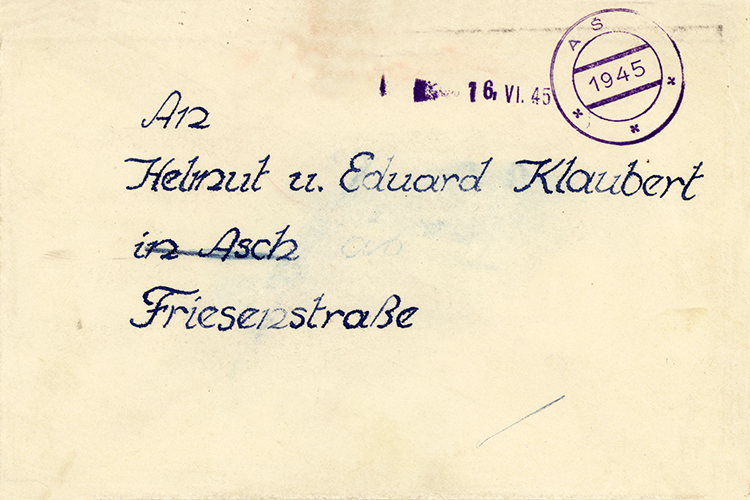 AŠ
1945
16. VI. 45
An
Helmut u. Eduard Klaubert
in Asch
Friesenstraße